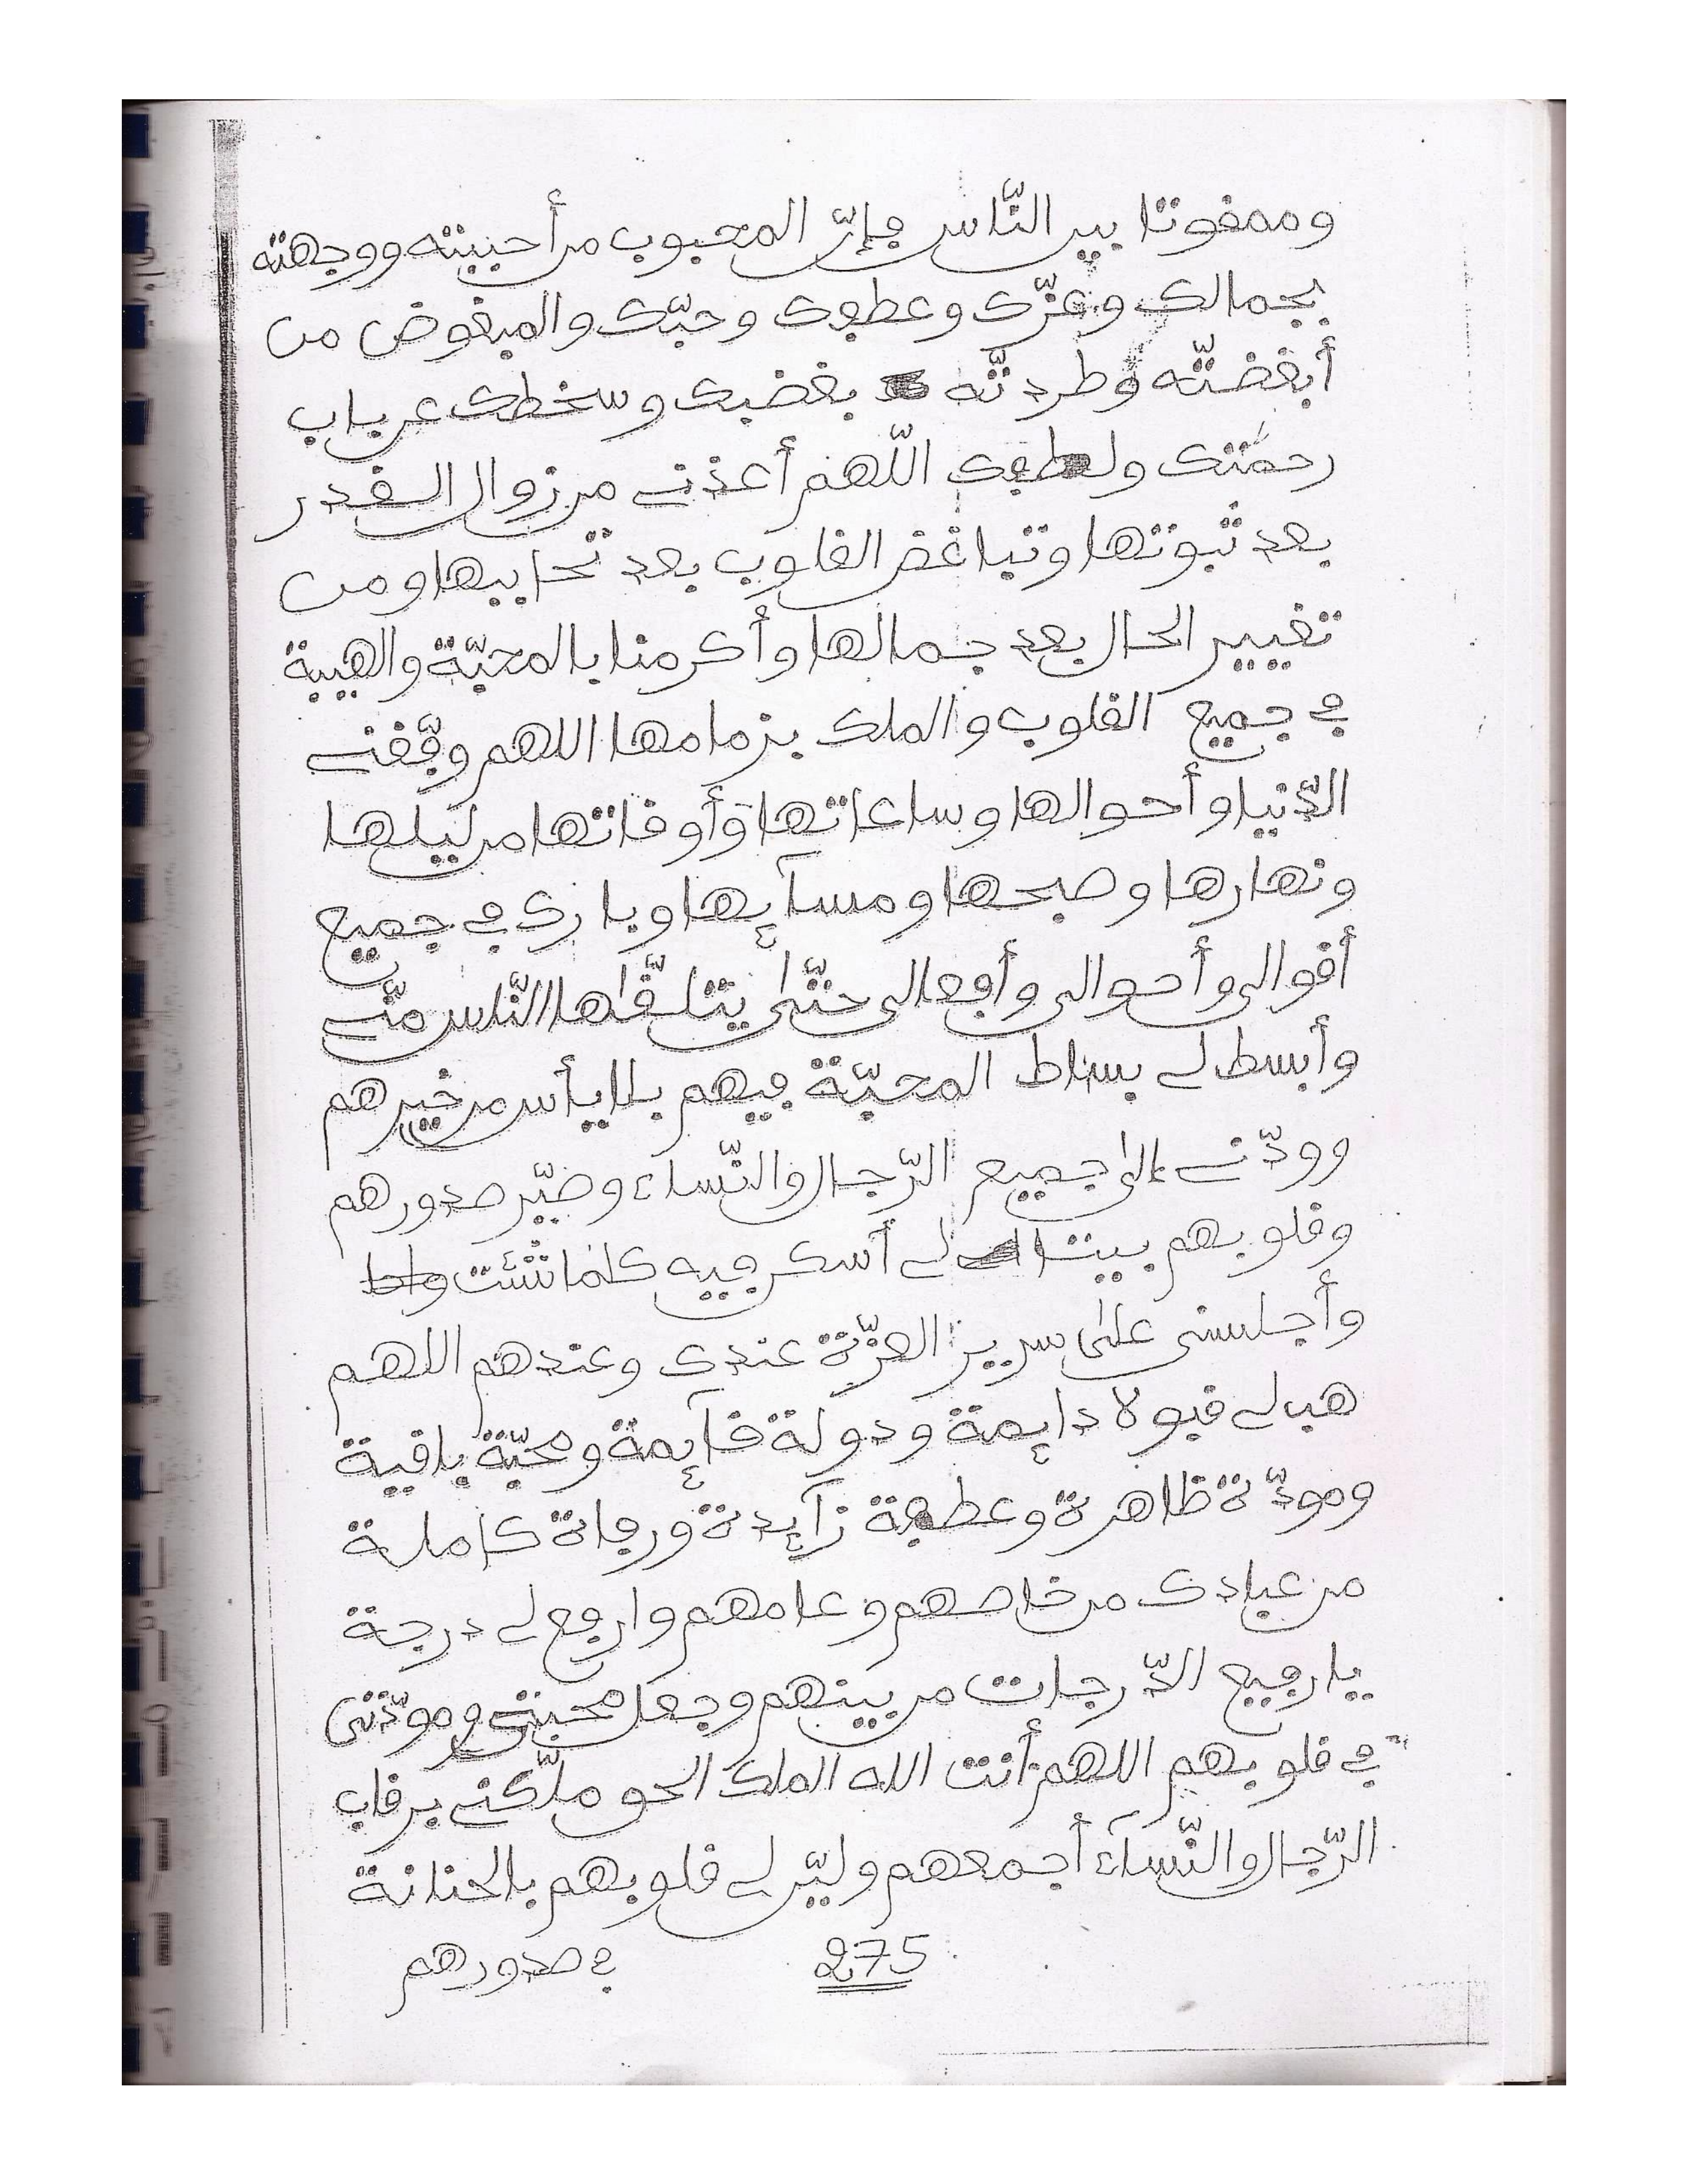 وممقوتا بين النّاس فإنّ المحبوب من أحببته ووجهته
بجمالك وعزّك وعطفك وحبّك والمبغوض من
أبغضتّه وطردتّه بغضبك وسخطك عن باب
رحمتك ولطفك اللّهم أعذنے من زوال القدر
بعد ثبوتها وتباغض القلوب بعد تحاببها ومن
تغيير الحال بعد جمالها وأكرمنا بالمحبّة والهيبة
في جميع القلوب والملك بزمامها اللهم وفّقنے
الدّنيا وأحوالها وساعاتها وأوقاتها من ليلها
ونهارها وصبحها ومسآئها وبارك في جميع
أقوالى وأحوالى وأفعالى حتّى يتلقّاها النّاس منّے
وأبسط لے بساط المحبّة فيهم بلا يأس من خيرهم
وودّنے إلى جميع الرّجال والنّساء وصيّر صدورهم
وقلوبهم بيتا لے أسكن فيه كلما شئت
وأجلسنى على سرير العزّة عندك وعندهم اللهم
هب لے قبولا دائمة ودولة قآئمة ومحبّة باقية
ومودّة ظاهرة وعطفة زآئدة ورجاة كاملة
من عبادك من خاصهم وعامهم وارفع لے درجة
يا رفيع الدّرجات من بينهم وجعل محبتى ومودّتى
في قلوبهم اللهم أنت الله الملك الحق ملّكنے برقاب
الرّجال والنّسآء أجمعهم وليّن لے قلوبهم بالحنانة
275
في صدورهم